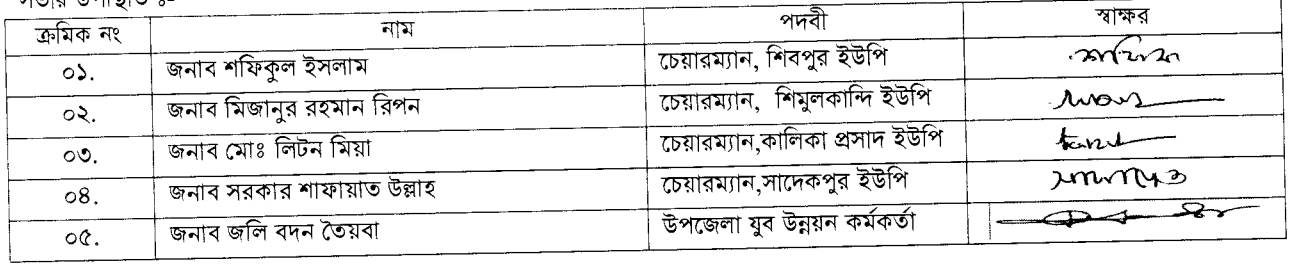 সভায় উপস্থিত ঃ-
ক্রমিক নং নাম পদবী স্বাক্ষর
০১. জনাব শফিকুল ইসলাম চেয়ারম্যান, শিবপুর ইউপি
০২. জনাব মিজানুর রহমান রিপন চেয়ারম্যান, শিমুলকান্দি ইউপি
০৩. জনাব মোঃ লিটন মিয়া চেয়ারম্যান,কালিকা প্রসাদ ইউপি
০৪. জনাব সরকার শাফায়াত উল্লাহ চেয়ারম্যান,সাদেকপুর ইউপি
০৫. জনাব জলি বদন তৈয়বা উপজেলা যুব উন্নয়ন কর্মকর্তা